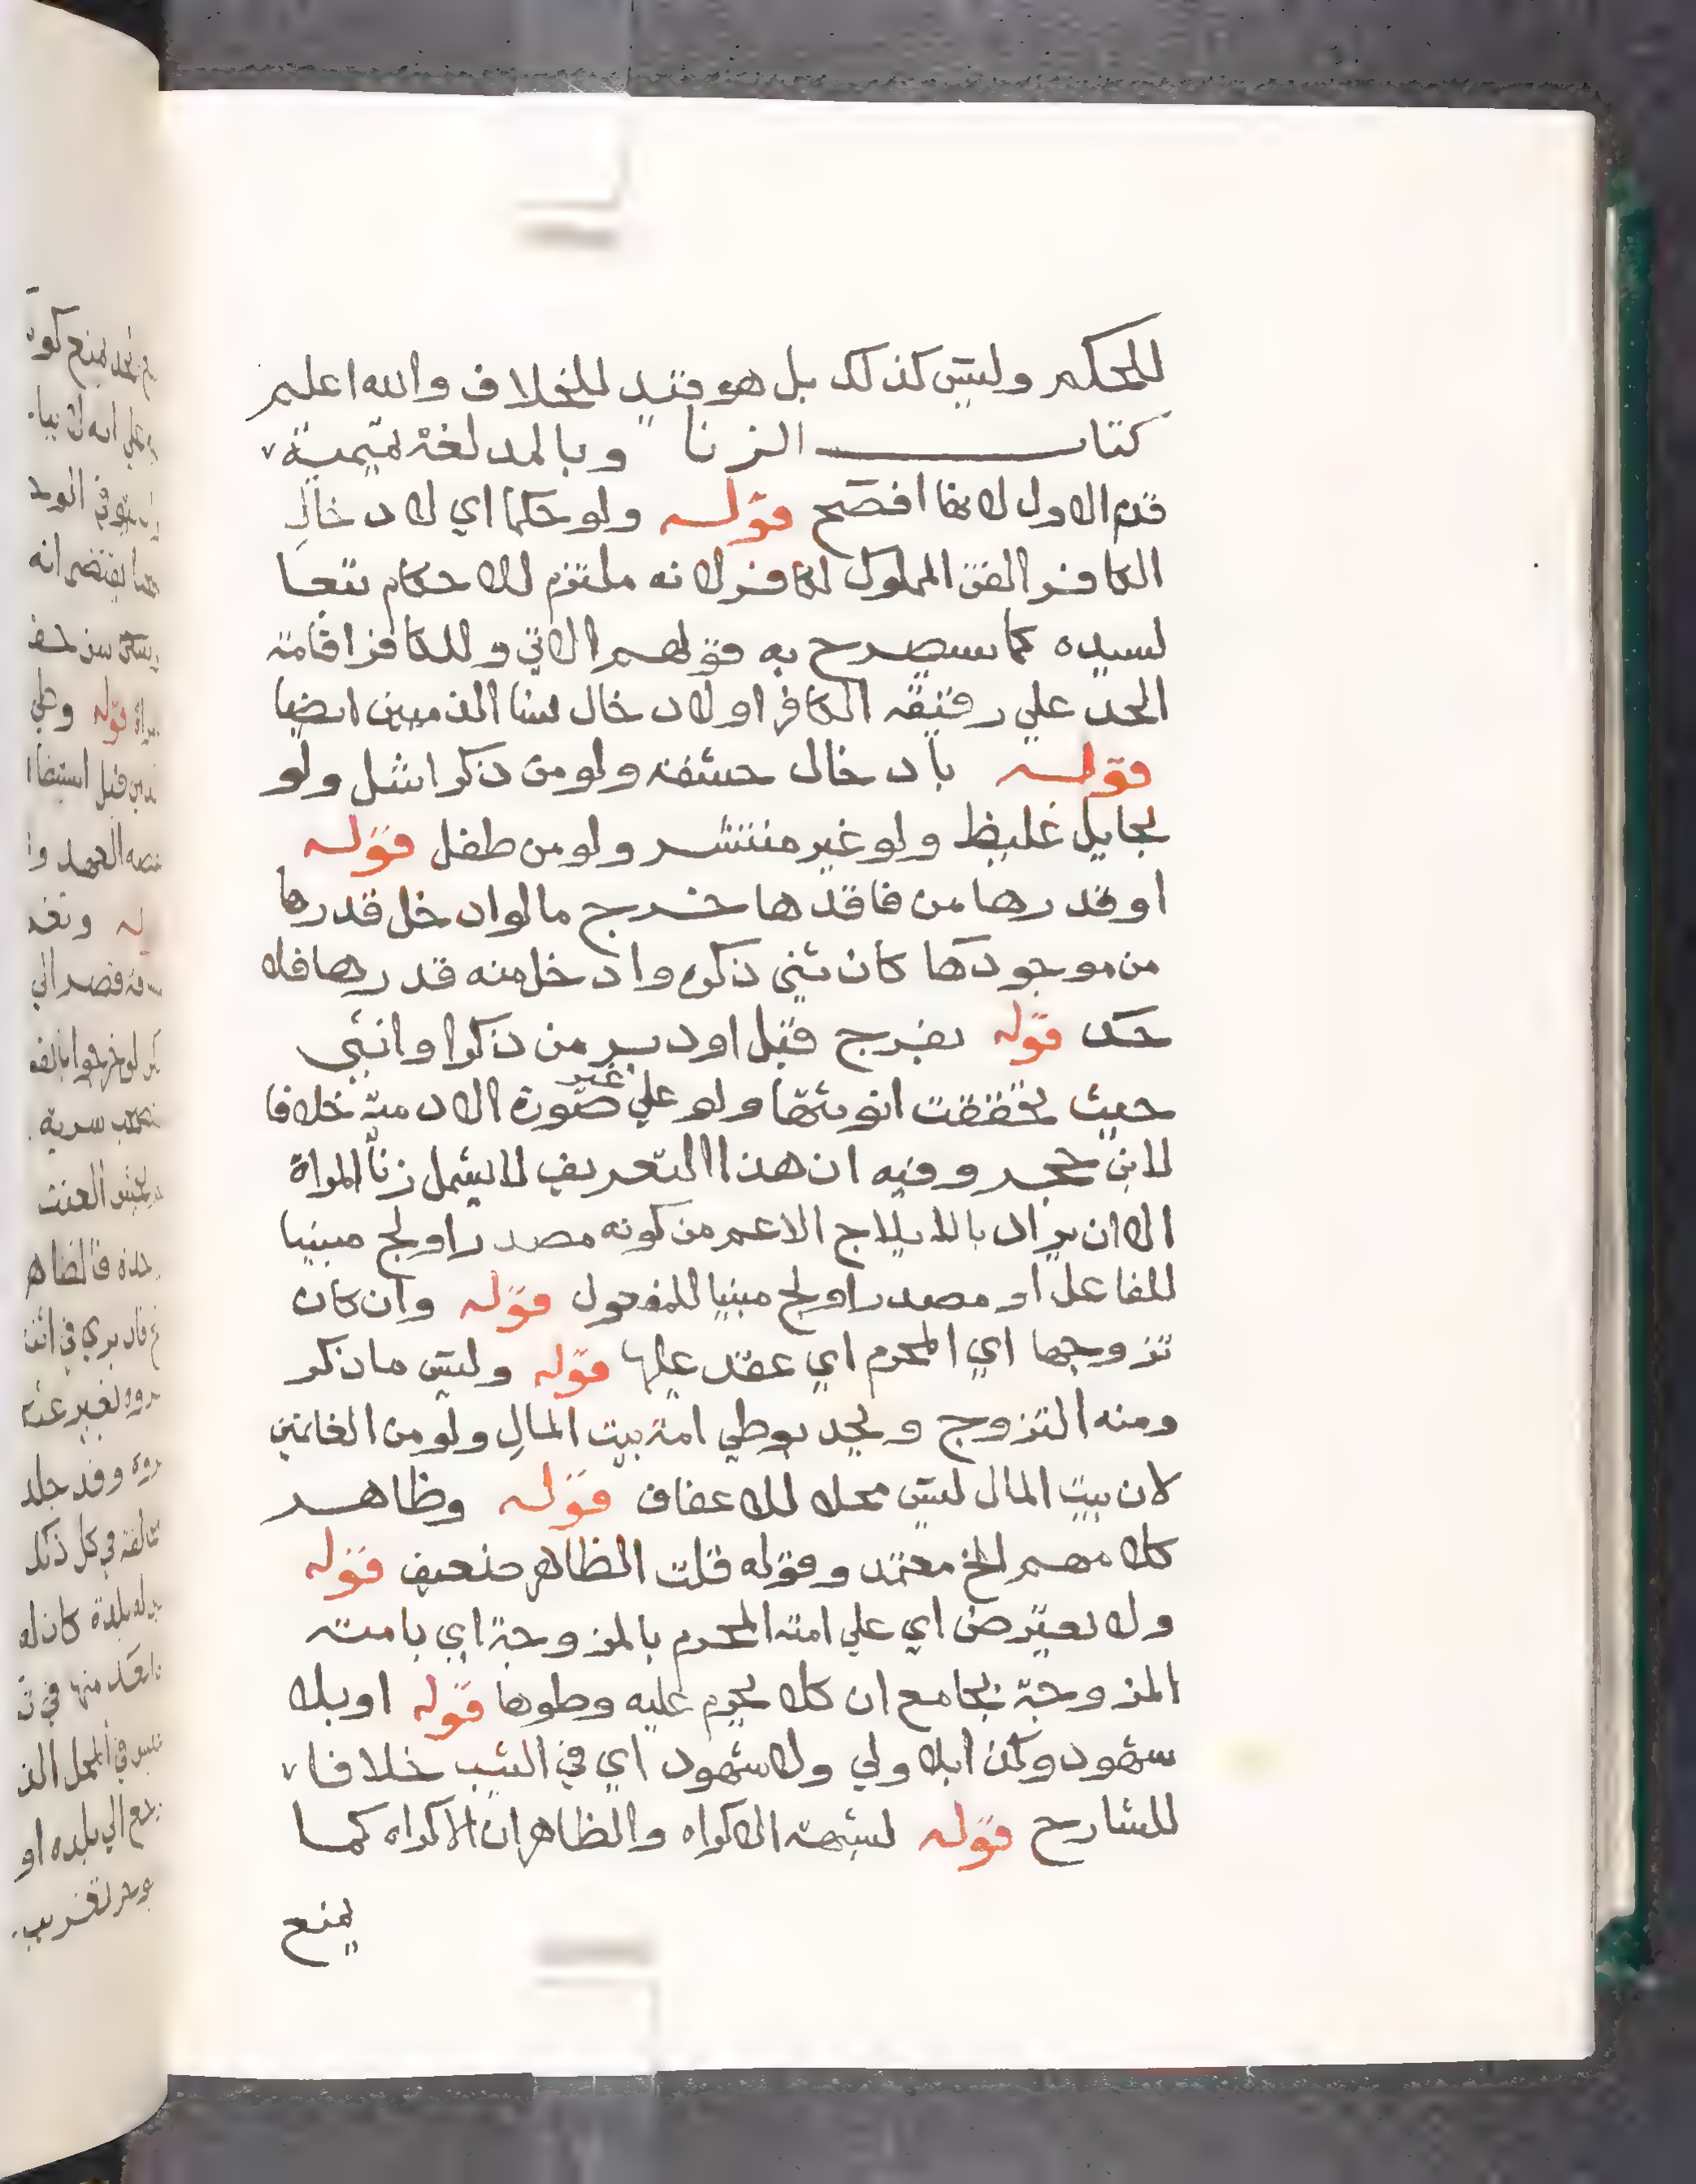 للحكم وليس كذلك بل هو قيد للخلاف والله اعلم
كتاب الزنا وبالمد لغة تميمية
قدم الاول لانها افصح قوله ولو حكما اي لادخال
الكافر القن المملوك لكافر لانه ملتزم للاحكام تبعا
لسيده كما سيصرح به قولهم الاتي وللكافر اقامة
الحد علي رقيقه الكافر او لادخال نسا الذميين ايضا
قوله بادخال حشفة ولو من ذكر اشل ولو
بحايل غليظ ولو غير منتشر ولو من طفل قوله
او قدرها من فاقدها خرج ما لو ادخل قدرها
من موجودها كان ثني ذكره وادخل منه قدرها فلا
حد قوله بفرج قبل او دبر من ذكر او انثي
حيث تحققت انوثتها ولو علي غير صورة الادمية خلافا
لابن حجر وفيه ان هذا التعريف لا يشمل زنا المراة
الا ان يراد بالايلاج الاعم من كونه مصدر اولج مبنيا
للفاعل او مصدر اولج مبنيا للمفعول قوله وان كان
تزوجها اي المحرم اي عقد عليها قوله وليس ما ذكر
ومنه التزوج ويحد بوطي امة بيت المال ولو من الغانمين
لان بيت المال ليس محلا للاعفاف قوله وظاهر
كلامهم الخ معتمد وقوله قلت الظاهر ضعيف قوله
ولا يعترض اي علي امته المحرم بالمزوجة اي بامته
المزوجة بجامع ان كلا يحرم عليه وطوها قوله او بلا
شهود وكذا بلا ولي ولا شهود اي في الثيب خلافا
للشارح قوله لشبهة الاكراه والظاهر ان الاكراه كما
يمنع